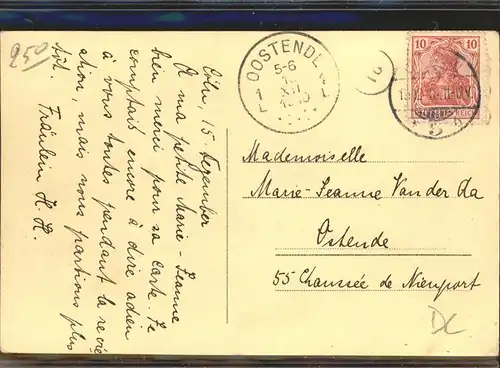 250
Cöln, 15. Dezember
A ma petite Marie-Jeanne
bien merci pour sa carte. Je
comptais encore à dire adieu
à vous toutes pendant la récré
ation, mais nous partions plus
tôt.
Fräulein H. H.
OOSTENDE
5-6
XII
1 L
10 10
REICH
Mademoiselle
Marie-Jeanne Van der
Ostende
55 Chaussée de Nieuport
DC